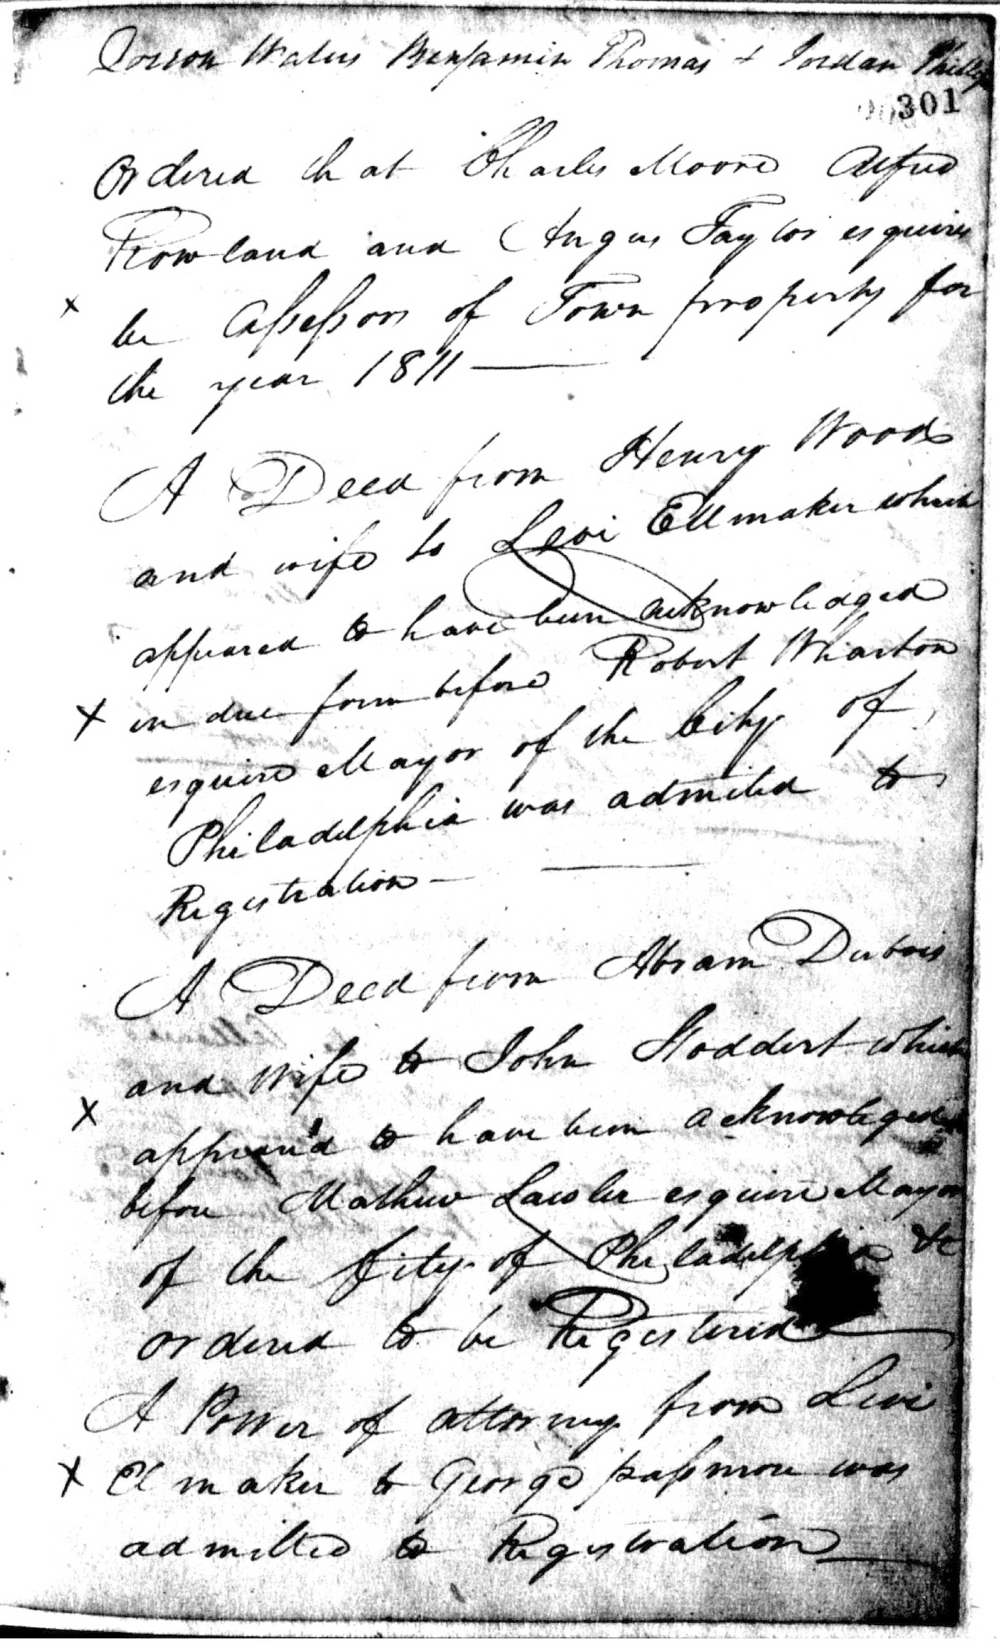 Waters Benjamin Thomas + Jordan Phillips
301
Ordered that Charles Moore Alfred
Rowland and Angus Taylor esquires
x be Assessors of Town property for
the year 1811 —
A Deed from Henry Woods
and wife to Levi Ellmaker which
appeared to have been acknowledged
x in due form before Robert Wharton
esquire Mayor of the City of
Philadelphia was admited to
Registration —
A Deed from Abram Dubois
and wife to John Stoddert which
x appear'd to have been acknowleged
before Mathew Lawler esquire Mayor
of the City of Philadelphia &
ordered to be Registered
A Power of attorney from Levi
x Elmaker to George passmore was
admitted to Registration —